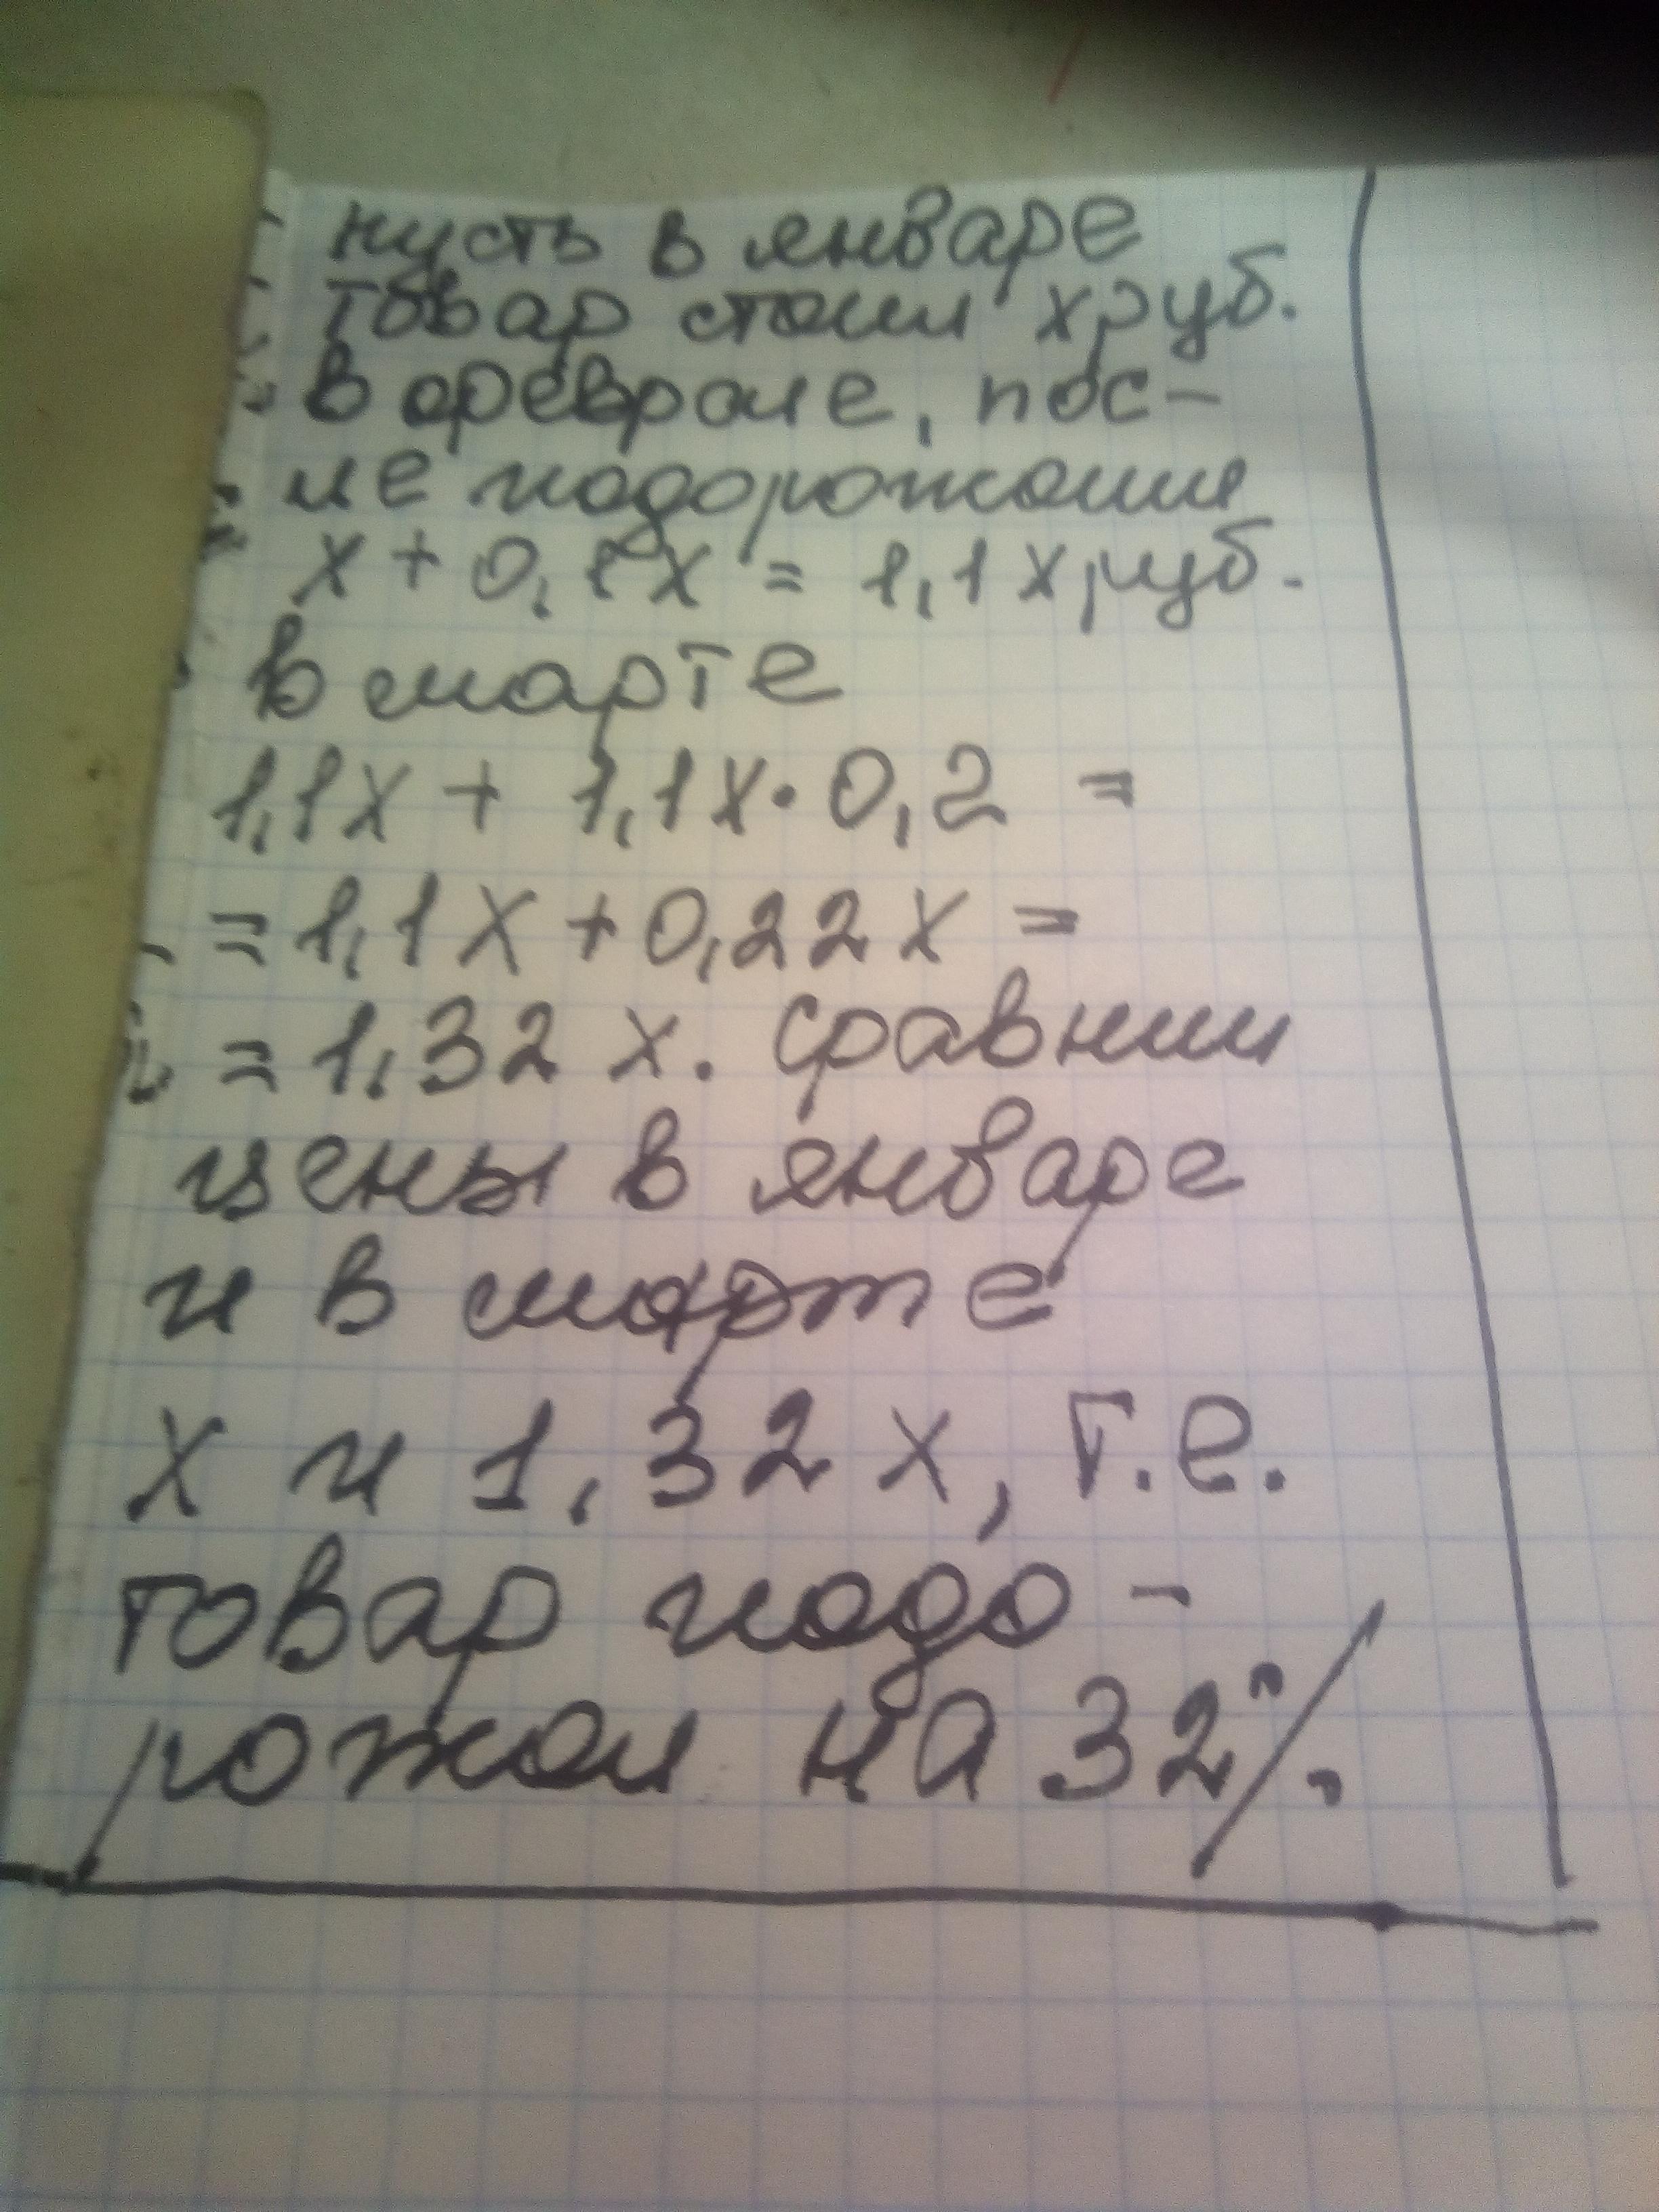 пусть в январе
товар стоил х руб.
в феврале, пос-
ле подорожания
х + 0,1х = 1,1х руб.
в марте
1,1х + 1,1х · 0,2 =
= 1,1х + 0,22х =
= 1,32 х. Сравним
цены в январе
и в марте
х и 1,32 х, т.е.
товар подо-
рожал на 32%